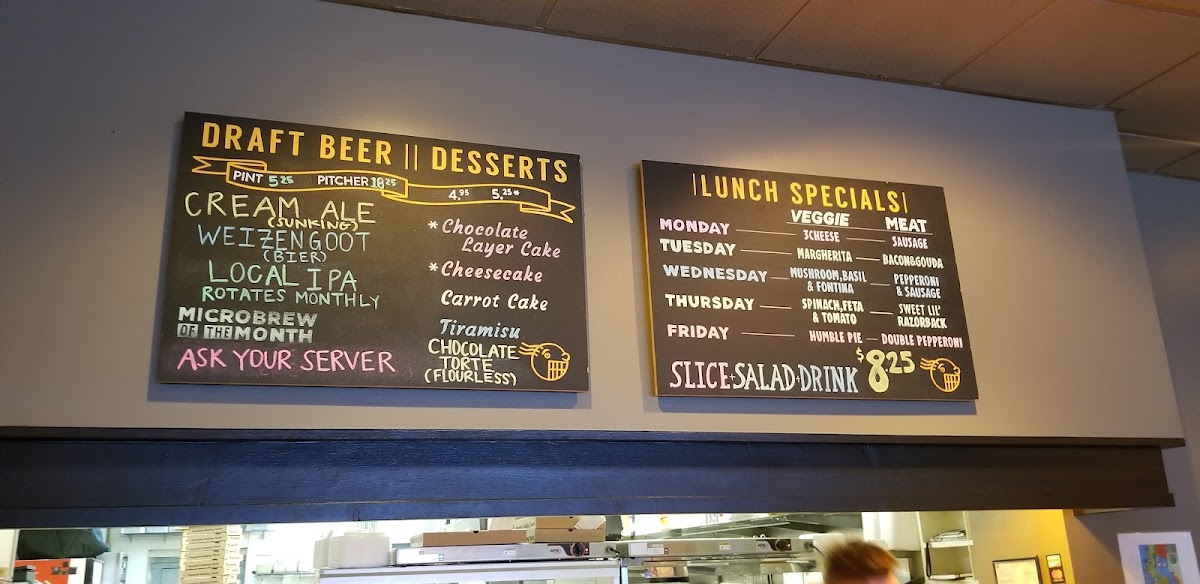 DRAFT BEER || DESSERTS
PINT 5.25 PITCHER 18.25
4.95 5.25*
CREAM ALE
(SUNKING)
WEIZENGOOT
(BIER)
LOCAL IPA
ROTATES MONTHLY
MICROBREW
OF THE MONTH
ASK YOUR SERVER
* Chocolate
Layer Cake
* Cheesecake
Carrot Cake
Tiramisu
CHOCOLATE
TORTE
(FLOURLESS)
|LUNCH SPECIALS|
VEGGIE MEAT
MONDAY 3CHEESE SAUSAGE
TUESDAY MARGHERITA BACON&GOUDA
WEDNESDAY MUSHROOM, BASIL & FONTINA PEPPERONI & SAUSAGE
THURSDAY SPINACH, FETA & TOMATO SWEET LIL' RAZORBACK
FRIDAY HUMBLE PIE DOUBLE PEPPERONI
SLICE+SALAD+DRINK $8.25